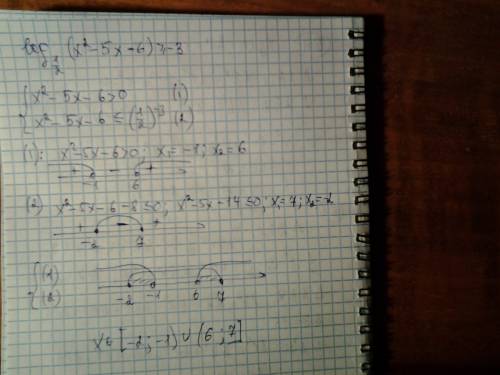 log_{1/2} (x²-5x-6) ≥ -3
{ x²-5x-6>0 (1)
x²-5x-6 ≤ (1/2)^{-3} (2)
(1): x²-5x-6>0; x₁=-1; x₂=6
+ - +
-1 6
(2) x²-5x-6-8≤0; x²-5x-14≤0; x₁=7; x₂=-2
+ - +
-2 7
{ (1)
(2) -2 -1 6 7
x∈[-2;-1)∪(6;7]